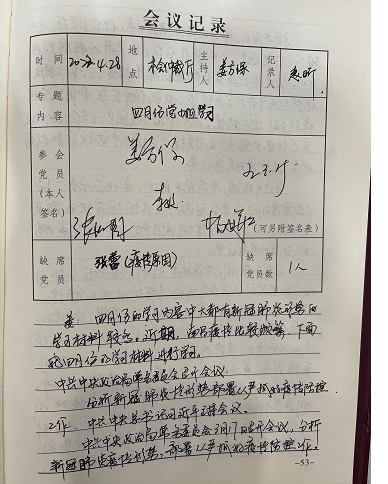 会议记录
时间 2022.4.28 地点 检仲裁厅 主持人 姜方保 记录人
专题内容 四月份学习
参会党员(本人签名)
(可另附签名表)
缺席党员 张雷(疫情原因) 缺席党员数 1人
姜:四月份的学习内容中大都有新冠肺炎形势的
学习材料较多。近期,南昌疫情比较频繁,下面
就四月份的学习材料进行学习。
中共中央政治局常务委员会召开会议。
分析新冠肺炎疫情形势部署从严抓好疫情防控
工作。中共中央总书记习近平主持会议。
中共中央政治局常务委员会3月17日召开会议,分析
新冠肺炎疫情形势,部署从严抓好疫情防控工作。
-53-